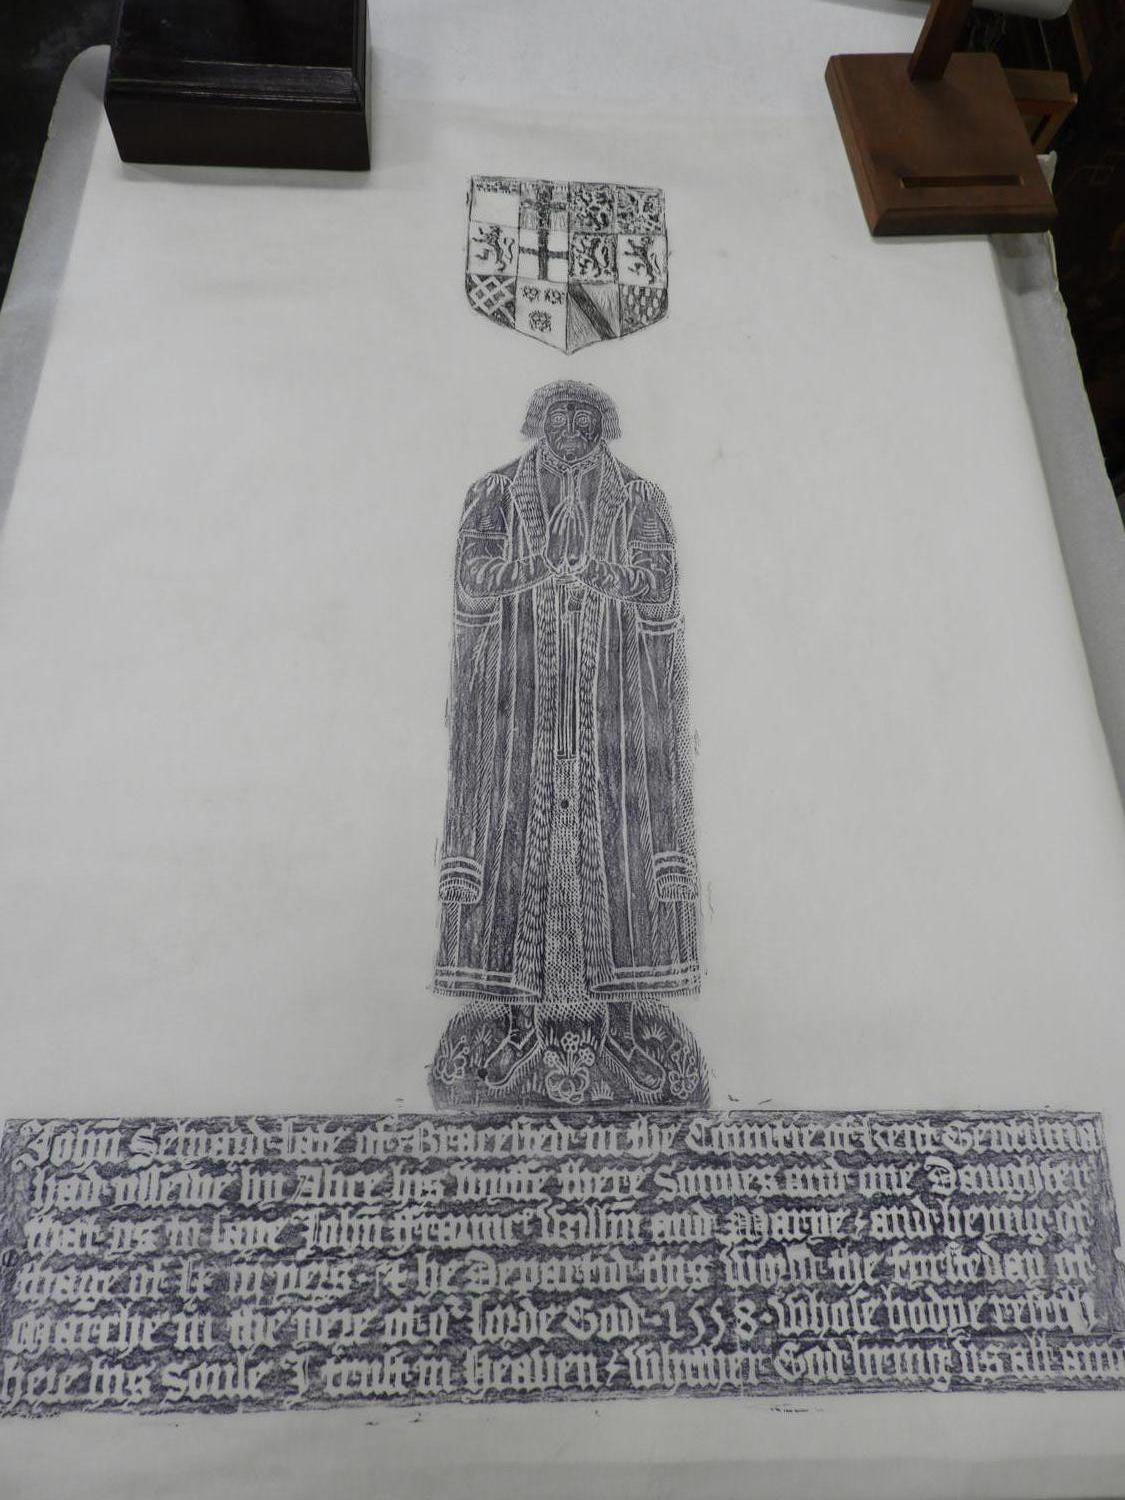 John Selyard late of Bracethed in the Countie of Kent Gentilmā
had yssewe by Alice his wyffe there Sonnes and one Daughter
that ys to saye John ffraunc̄ Willm̄ and Marye / and beyng of
thage of lx yers he Departid this World the day of
Marche in the yere of oʳ lorde God 1558 whose bodye restith
here his Soule I trust in heaven / Whether God bring us all amē